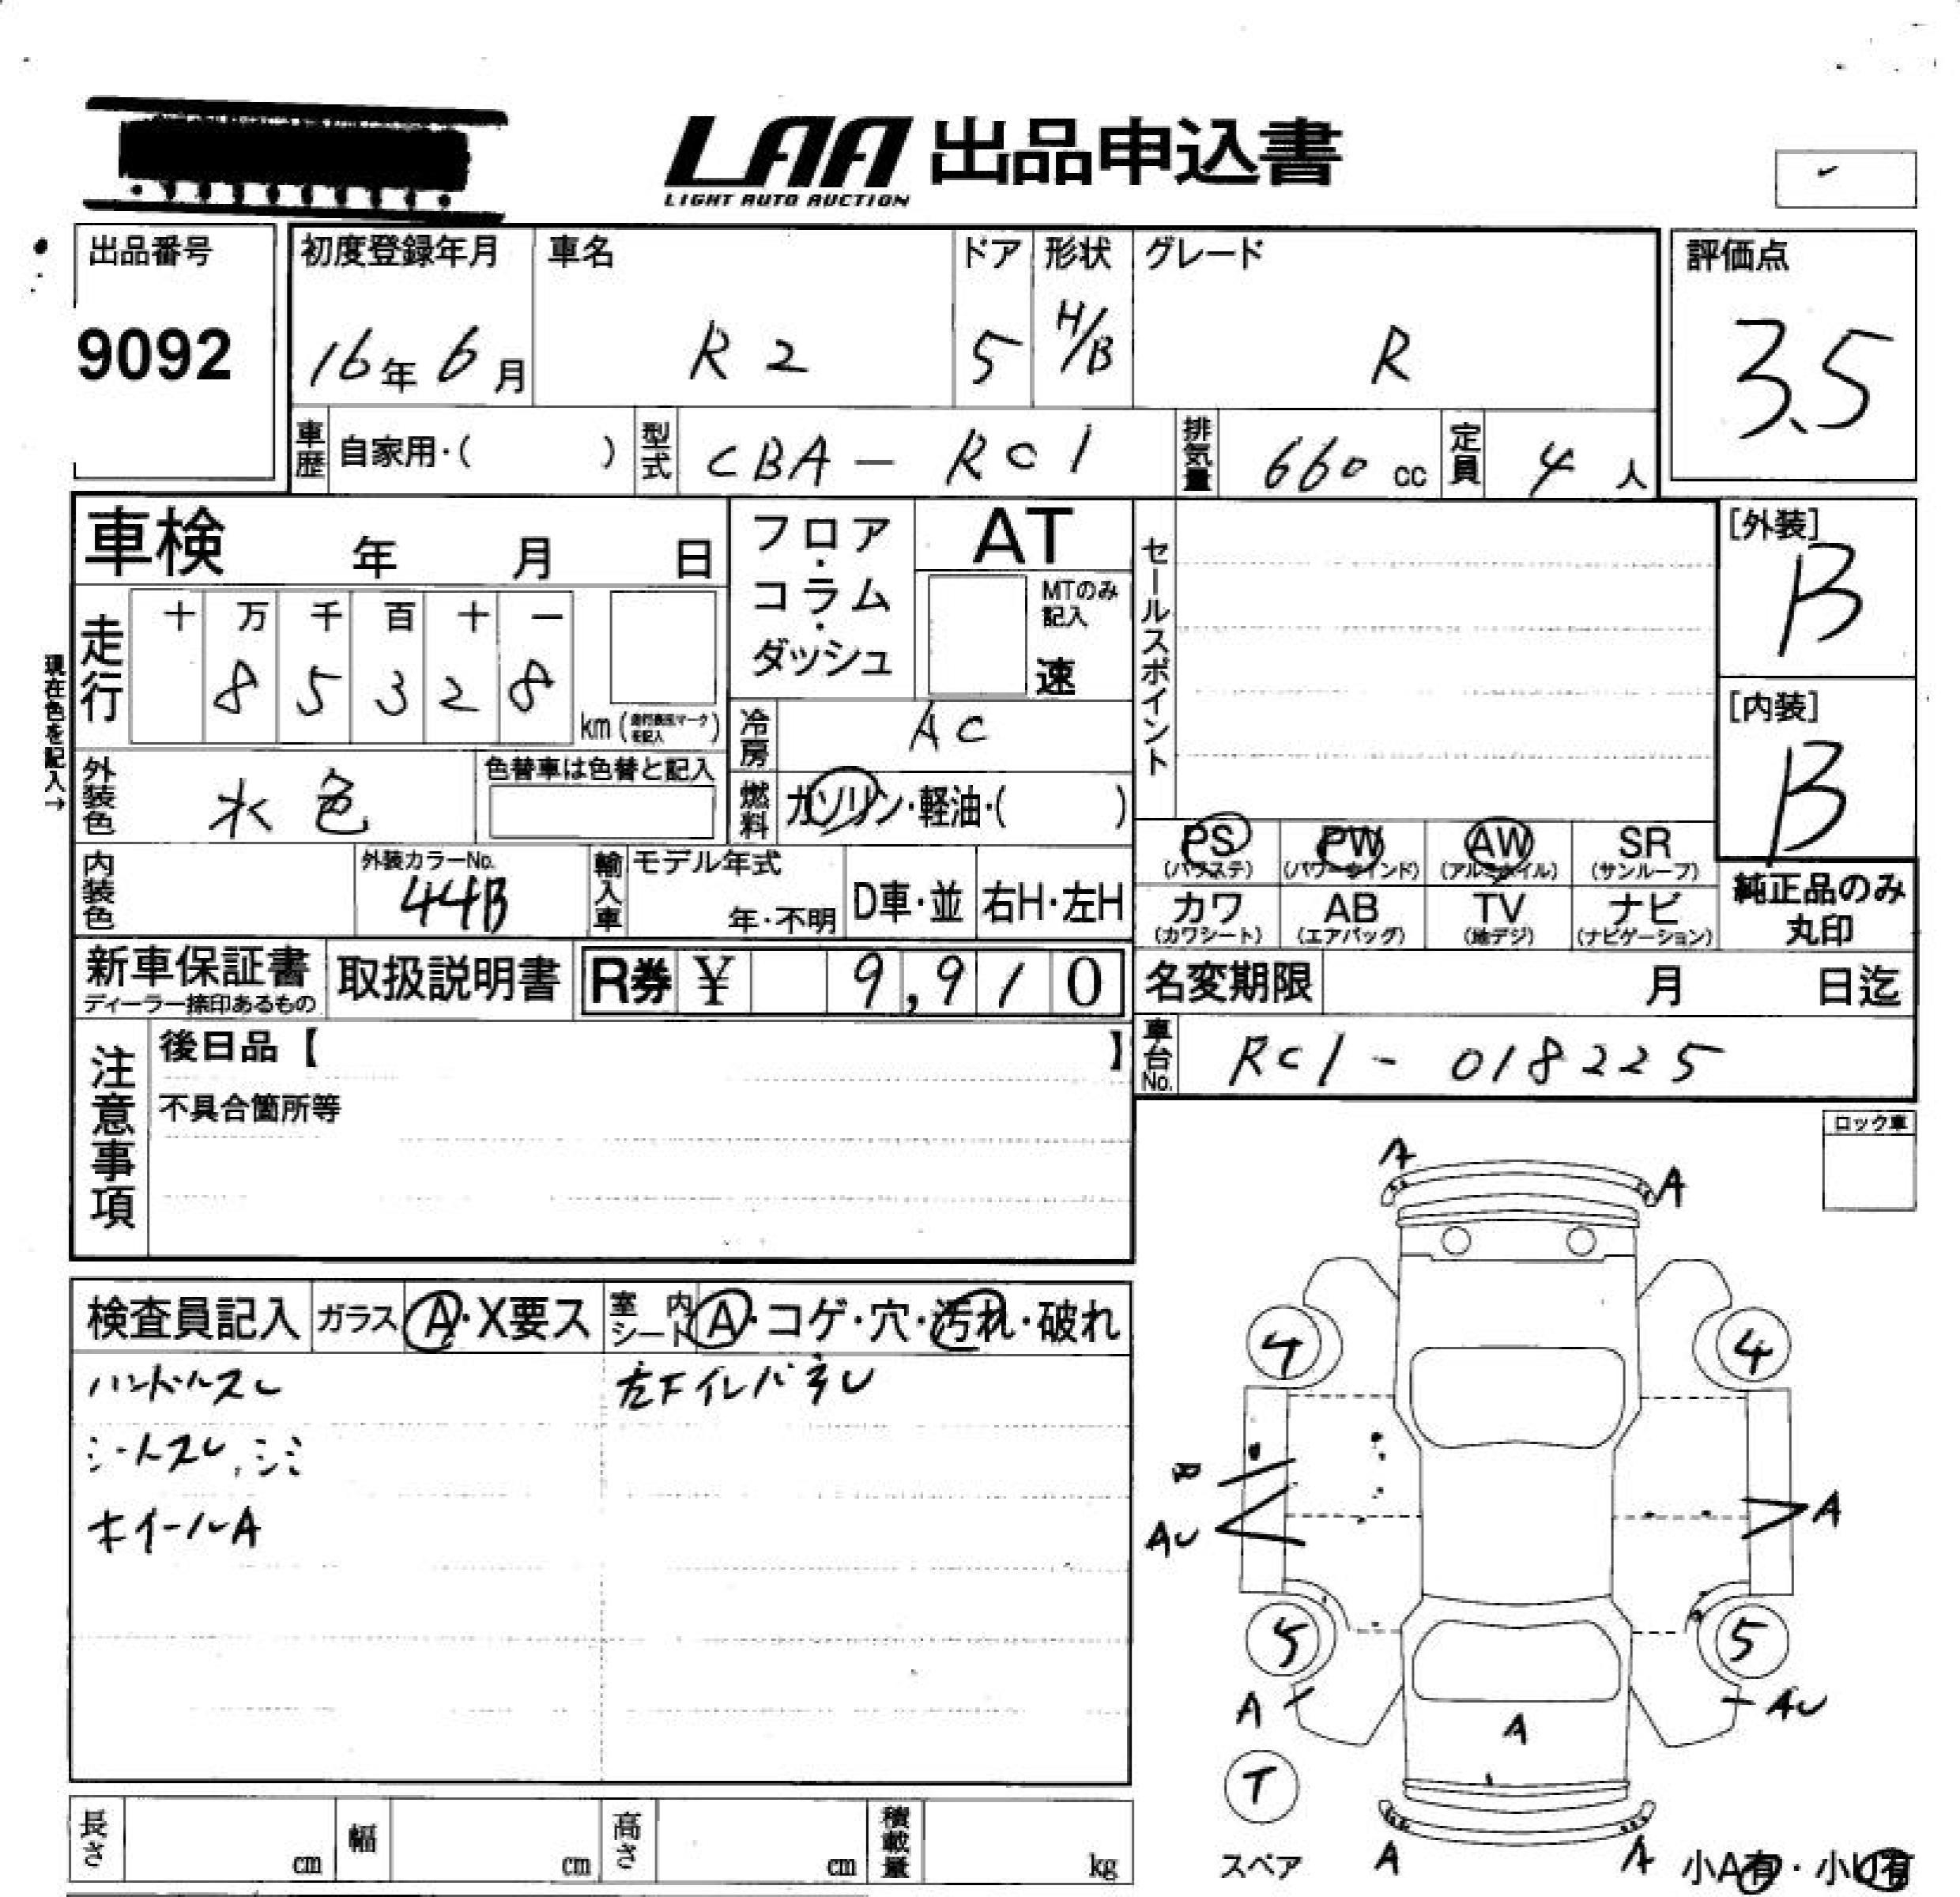 LAA 出品申込書
LIGHT AUTO AUCTION
出品番号
9092
初度登録年月
16年 6月
車名
R2
ドア
5
形状
H/B
グレード
R
評価点
3.5
車歴 自家用・( )
型式 CBA－RC1
排気量 660 cc
定員 4 人
車検 年 月 日
フロア・コラム・ダッシュ
AT
MTのみ記入
速
セールスポイント
[外装]
B
[内装]
B
現在色を記入→
走行
十 万 千 百 十 一
8 5 3 2 8
km
冷房 AC
外装色 水色
色替車は色替と記入
燃料 ガソリン・軽油・( )
内装色
外装カラーNo.
44B
輸入車
モデル年式
年・不明
D車・並
右H・左H
PS
(パワステ)
PW
(パワーウインド)
AW
(アルミホイル)
SR
(サンルーフ)
カワ
(カワシート)
AB
(エアバッグ)
TV
(地デジ)
ナビ
(ナビゲーション)
純正品のみ
丸印
新車保証書
ディーラー捺印あるもの
取扱説明書
R券 ¥ 9,910
名変期限 月 日迄
注意事項
後日品【 】
不具合箇所等
車台No. RC1-018225
ロック車
検査員記入
ガラス A・X要ス
室内シート A・コゲ・穴・汚れ・破れ
ハンドルスレ
シートスレ,シミ
ホイールA
A
A
4
4
AU
A
5
5
A
AU
A
T
スペア
A
A
小A有・小U有
長さ cm
幅 cm
高さ cm
積載量 kg